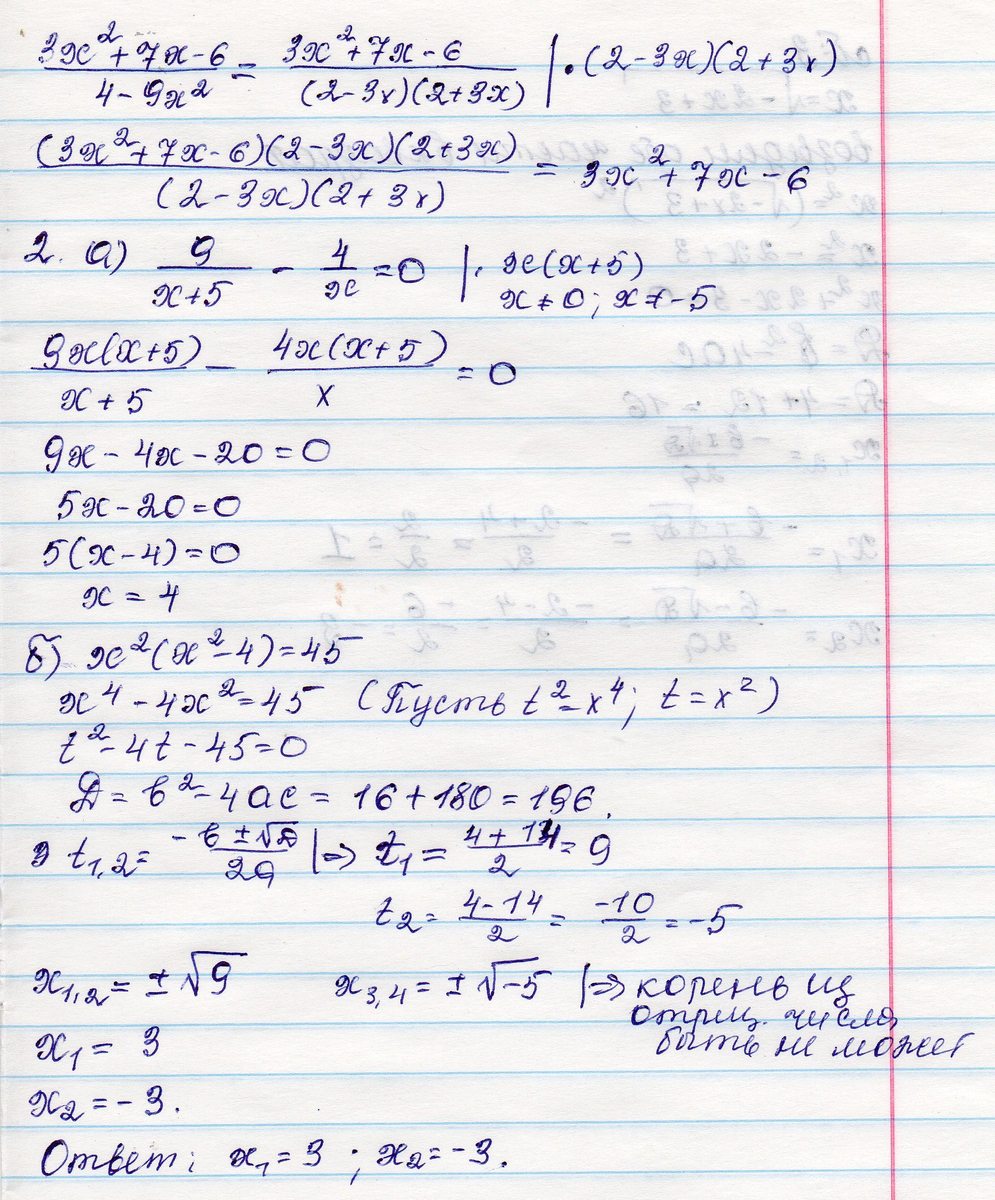 (3x²+7x-6)/(4-9x²) = (3x²+7x-6)/((2-3x)(2+3x)) | · (2-3x)(2+3x)
((3x²+7x-6)(2-3x)(2+3x))/((2-3x)(2+3x)) = 3x²+7x-6
2. а) 9/(x+5) - 4/x = 0 | · x(x+5)
x≠0; x≠-5
9x(x+5)/(x+5) - 4x(x+5)/x = 0
9x-4x-20=0
5x-20=0
5(x-4)=0
x=4
б) x²(x²-4)=45
x⁴-4x²=45 (Пусть t²=x⁴; t=x²)
t²-4t-45=0
Д=b²-4ac=16+180=196.
t₁,₂=(-b±√Д)/2a |⇒ t₁=(4+14)/2=9
t₂=(4-14)/2=-10/2=-5
x₁,₂=±√9 x₃,₄=±√-5 |⇒ корень из
отриц. числа
быть не может
x₁=3
x₂=-3.
Ответ: x₁=3; x₂=-3.